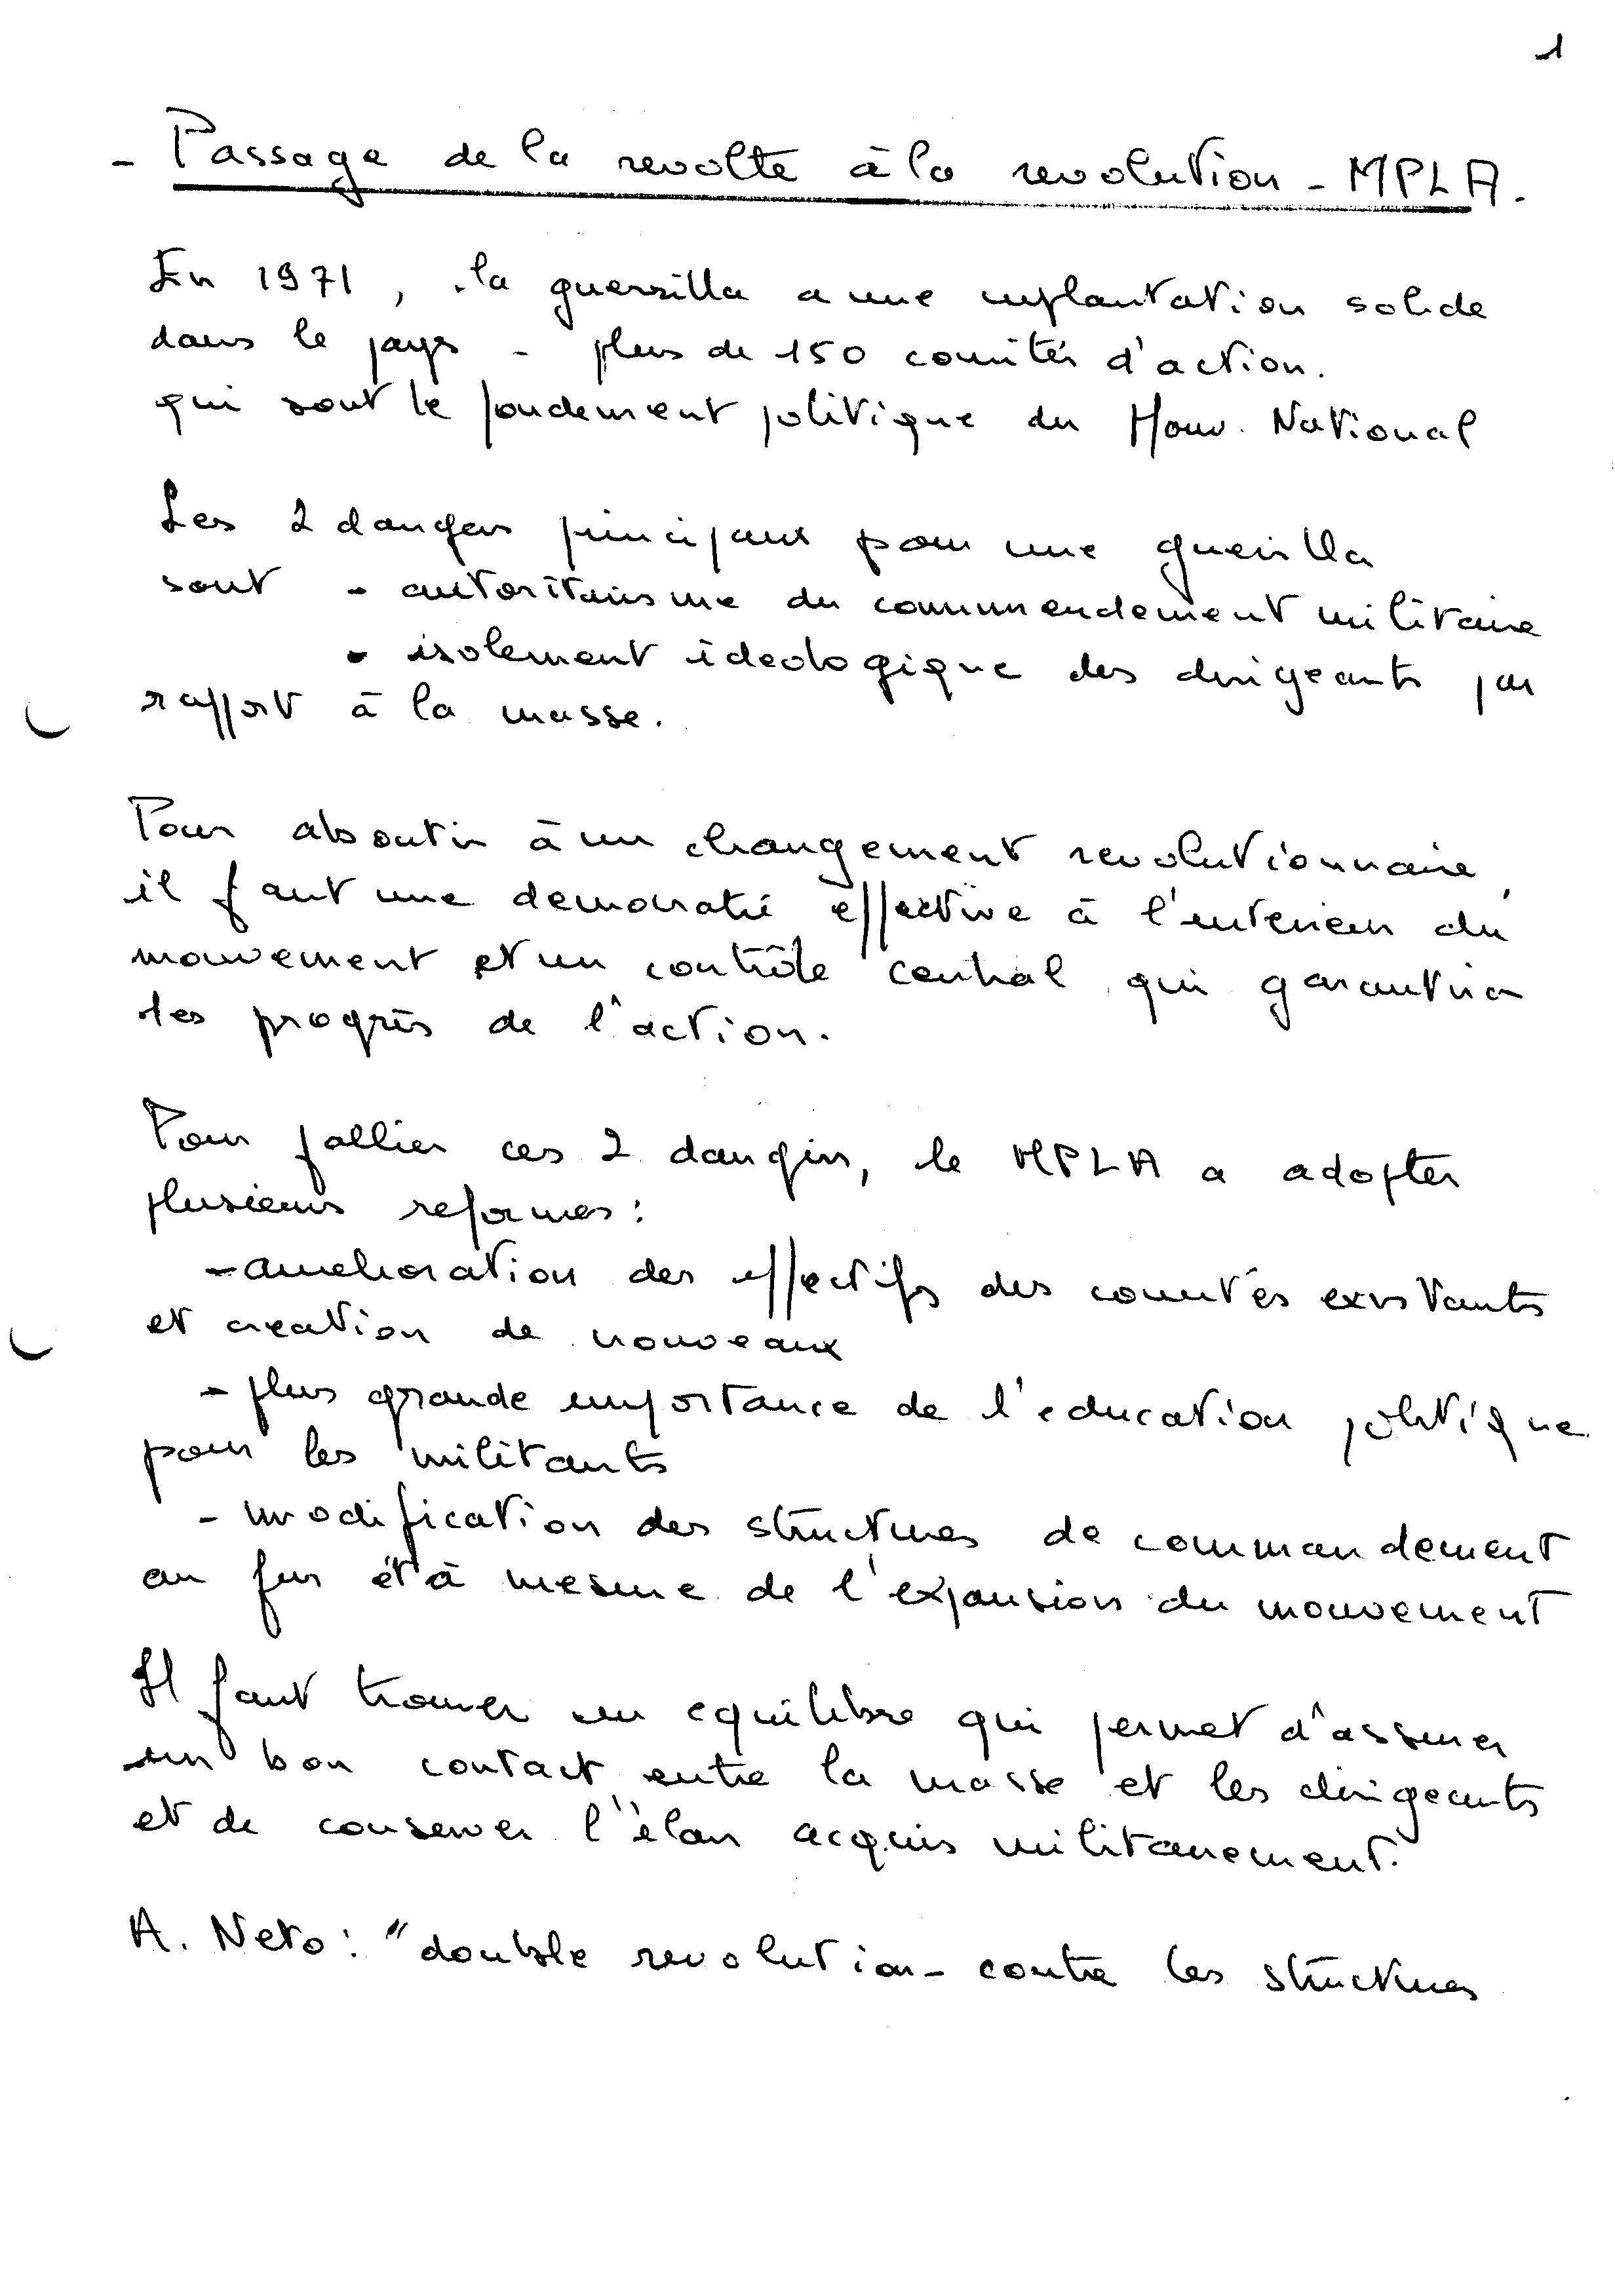 1
- Passage de la revolte à la revolution - MPLA.
En 1971, la guerrilla a une implantation solide
dans le pays - plus de 150 comités d'action.
qui sont le fondement politique du Mouv. National
Les 2 dangers principaux pour une guerilla
sont - autoritarisme du commendement militaire
- isolement idéologique des dirigeants par
rapport à la masse.
Pour aboutir à un changement revolutionnaire,
il faut une democratie effective à l'interieur du
mouvement et un contrôle central qui garantira
les progrès de l'action.
Pour pallier ces 2 dangers, le MPLA a adopter
plusieurs reformes :
- amelioration des effectifs des comités existants
et creation de nouveaux
- plus grande importance de l'education politique
pour les militants
- modification des structures de commandement
au fur et à mesure de l'expansion du mouvement
Il faut trouver un equilibre qui permet d'assurer
un bon contact entre la masse et les dirigeants
et de conserver l'élan acquis militairement.
A. Neto : "double revolution - contre les structures